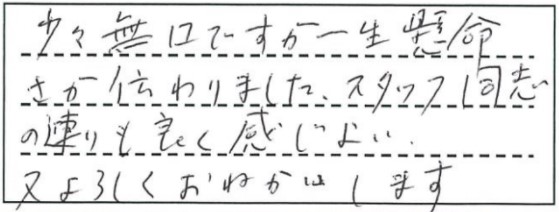 少々無口ですが一生懸命
さが伝わりました、スタッフ同志
の連りも良く感じよい.
又よろしくおねがいします